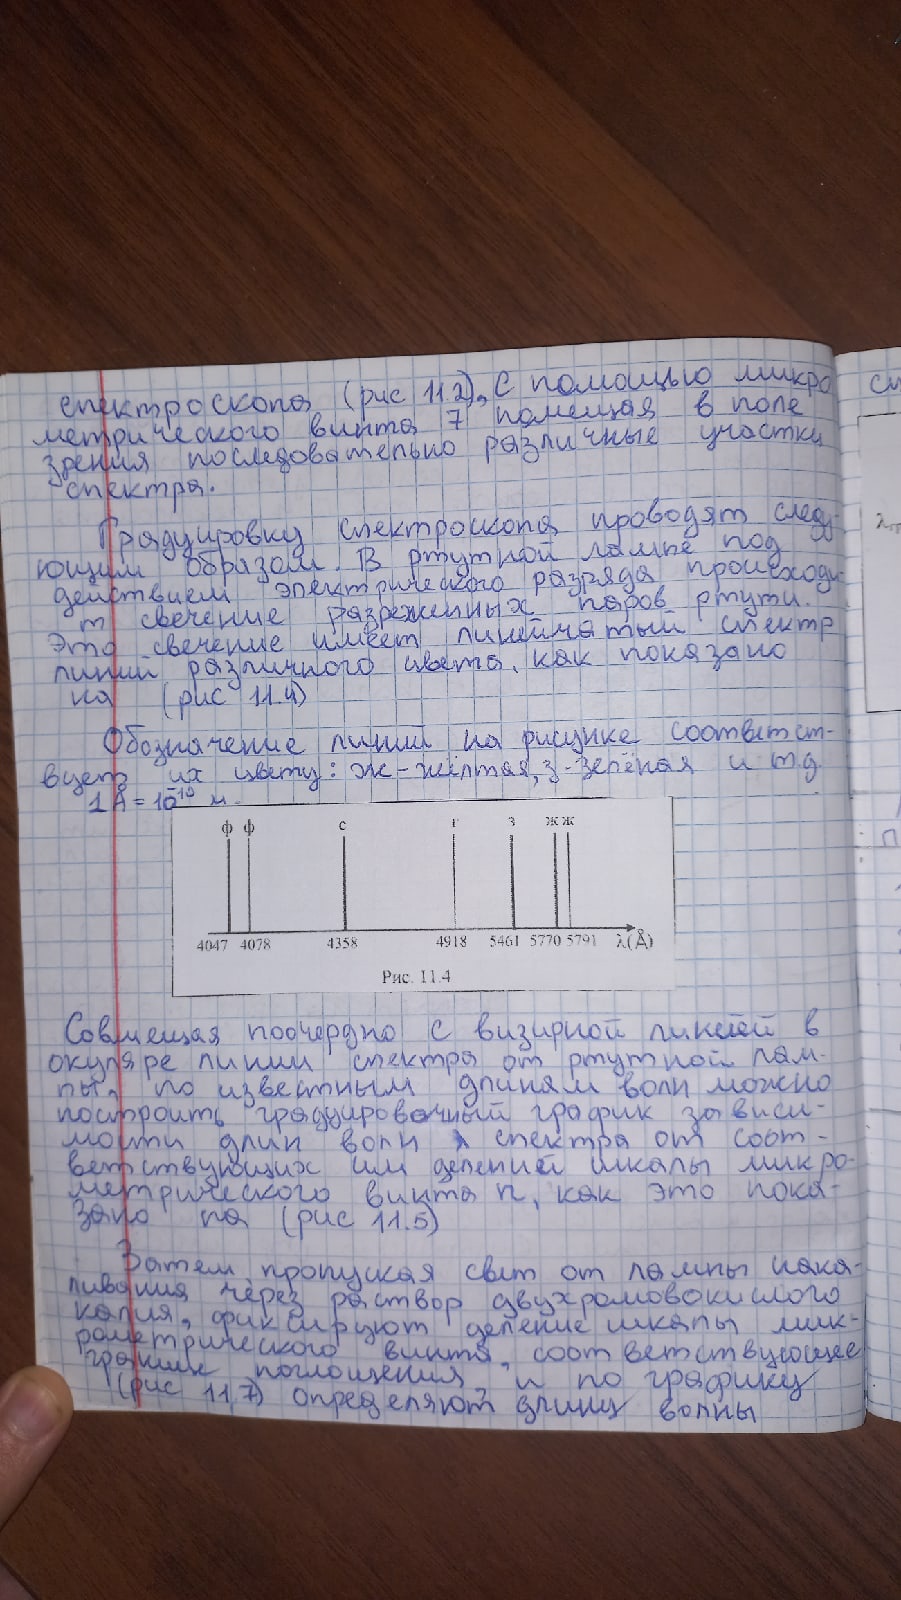 спектроскопа (рис 11.2), с помощью микро
метрического винта 7 помещая в поле
зрения последовательно различные участки
спектра.
Градуировку спектроскопа проводят следу-
ющим образом. В ртутной лампе под
действием электрического разряда происходи-
т свечение разреженных паров ртути.
Это свечение имеет линейчатый спектр
линий различного цвета, как показано
на (рис 11.4)
Обозначение линий на рисунке соответст-
вует их цвету: ж-жёлтая, з-зелёная и т.д
1 Å = 10⁻¹⁰ м.
ф ф с г з ж ж
4047 4078 4358 4918 5461 5770 5791 λ(Å)
Рис. 11.4
Совмещая поочерёдно с визирной линией в
окуляре линии спектра от ртутной лам-
пы, по известным длинам волн можно
построить градуировочный график зависи-
мости длин волн λ спектра от соот-
ветствующих им делений шкалы микро-
метрического винта n, как это пока-
зано на (рис 11.5)
Затем пропуская свет от лампы нака-
ливания через раствор двухромовокислого
калия, фиксируют деление шкалы мик-
рометрического винта, соответствующее
границе поглощения, и по графику
(рис 11,7) определяют длину волны